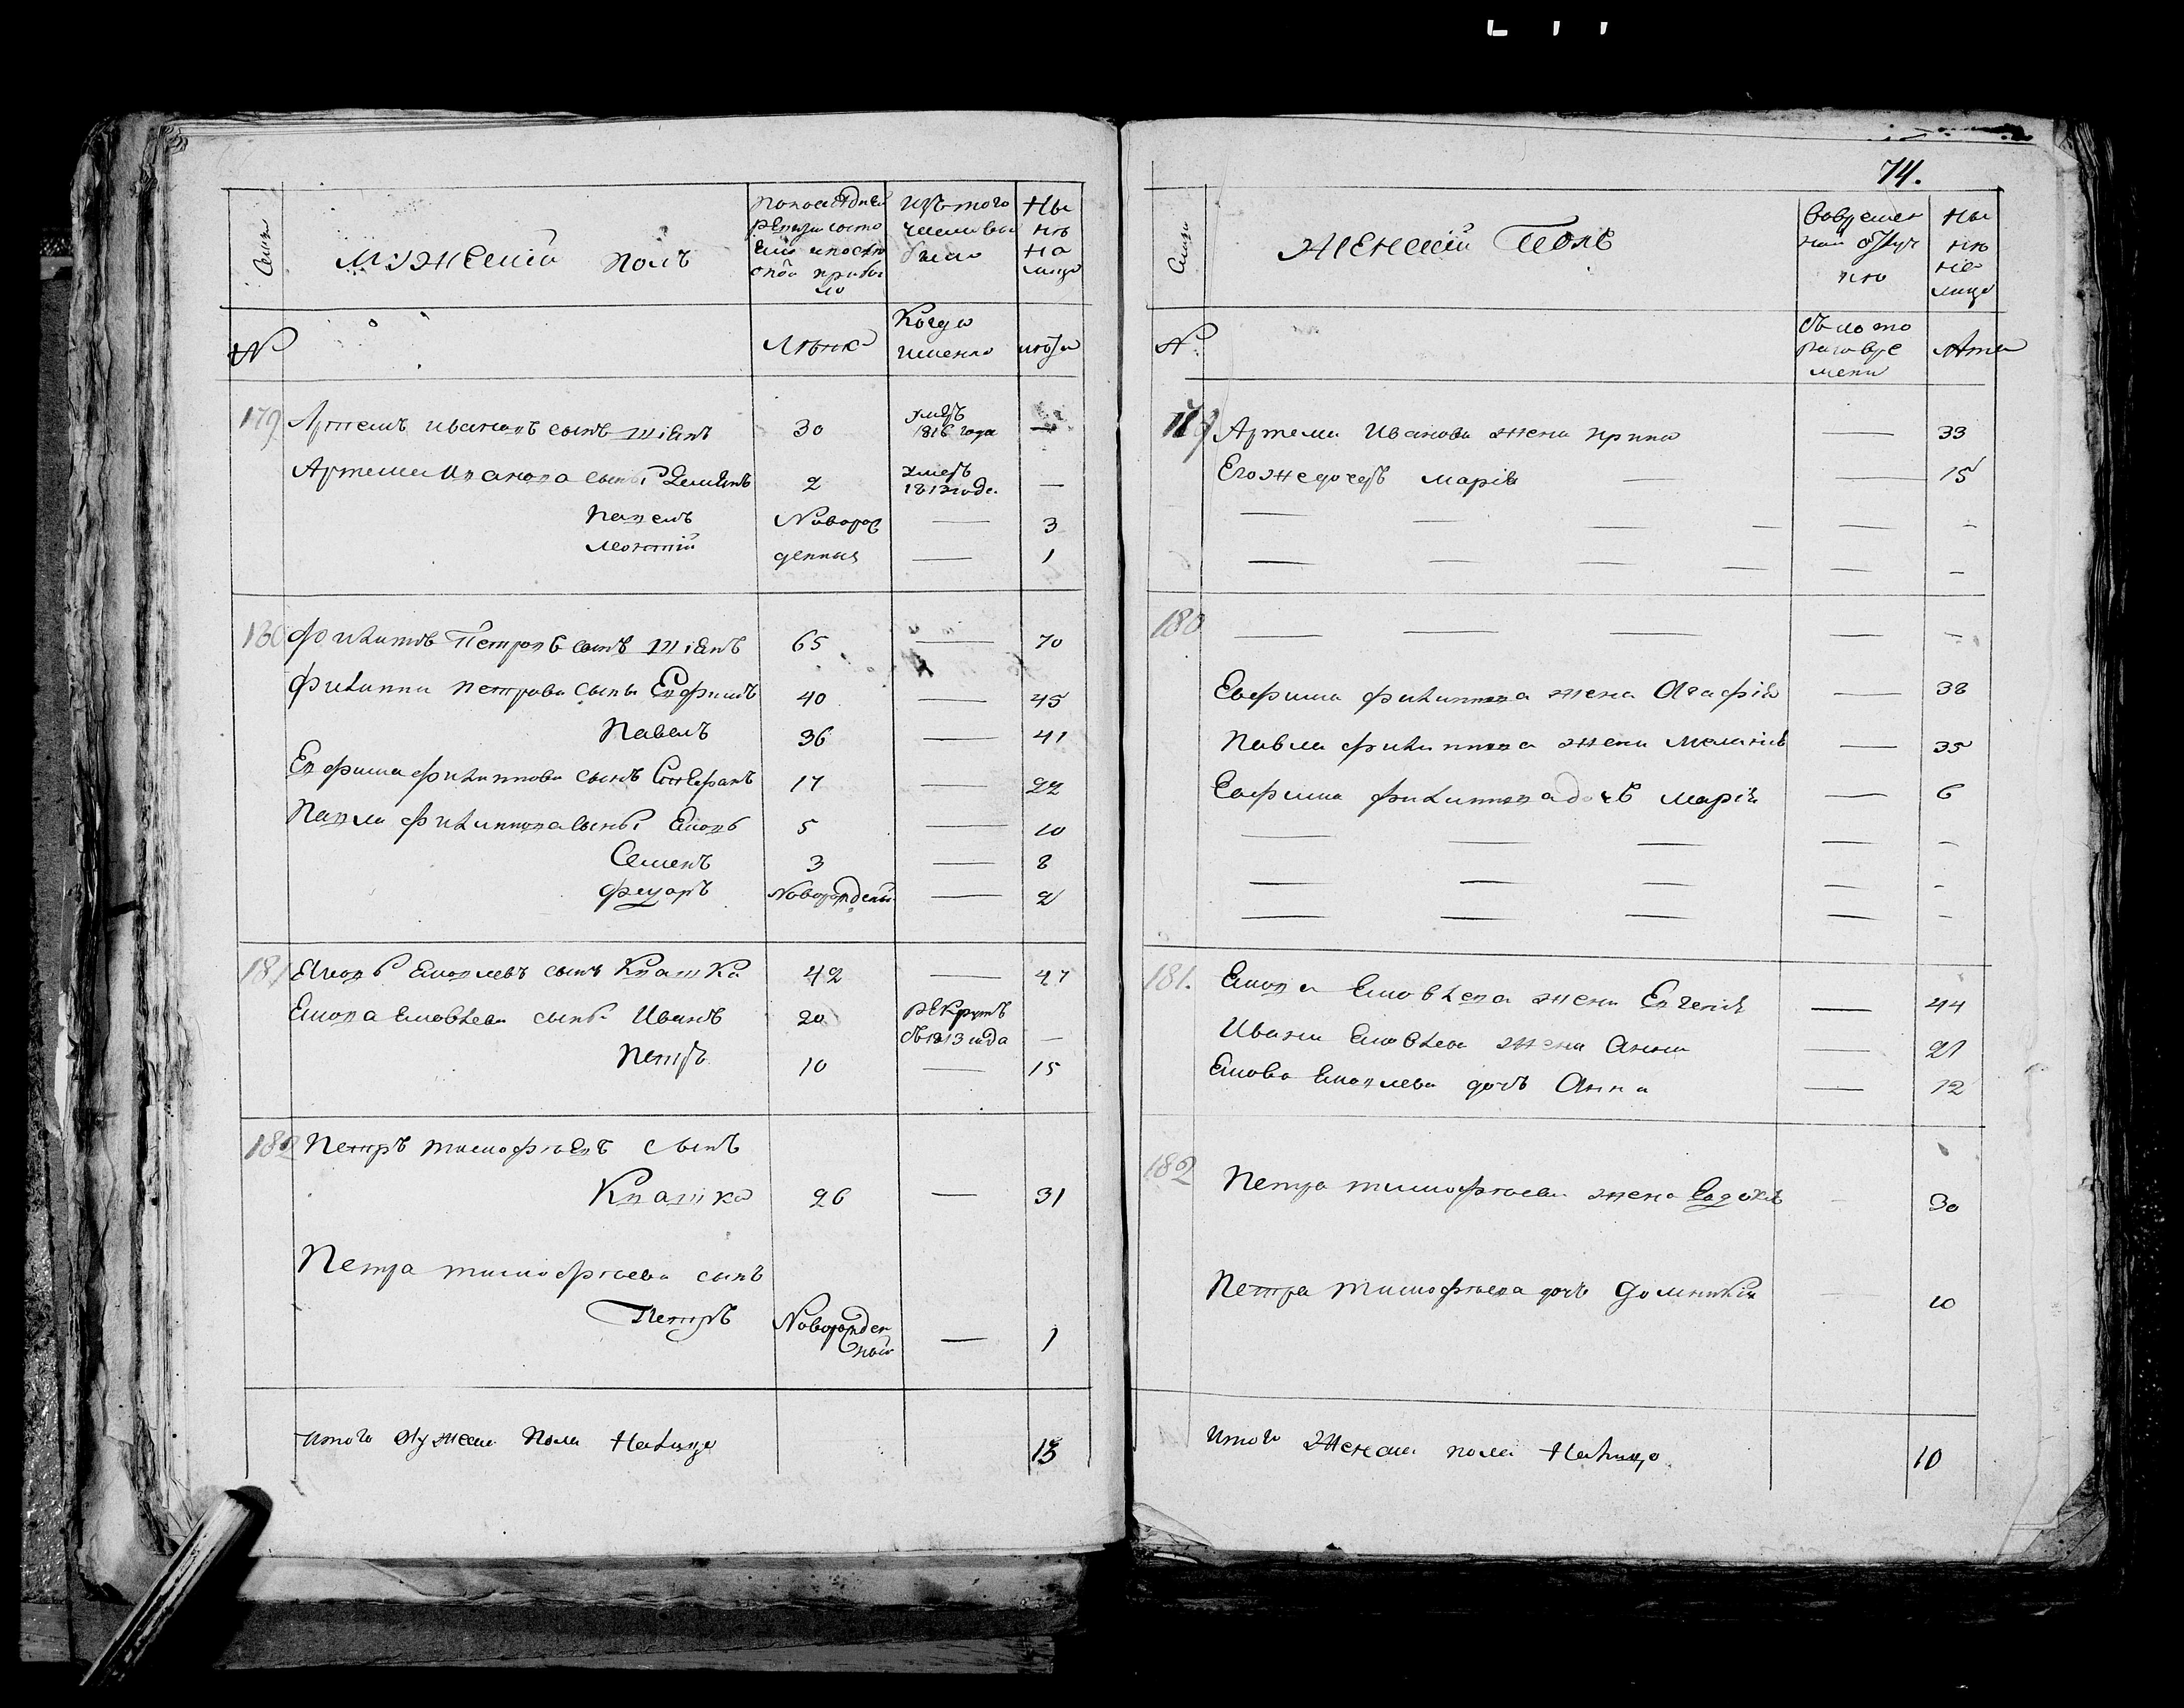 Семьи
Мужеский полъ
По последней
ревизи состо
яло и после
оной прибы
ло
Изъ того
числа вы
было
Ны
не
на
лицо
№
Лета
Когда
именно
лета
179 Артемъ Ивановъ сынъ
30
умеръ
1816 года
—
Артема Иванова сынъ Демьянъ
2
умеръ
1813 года
—
Павелъ
Новорож
—
3
Леонтий
денныя
—
1
180 Филипъ Петровъ сынъ
65
—
70
Филиппа Петрова сынъ Ефимъ
40
—
45
Павелъ
36
—
41
Ефима Филиппова сынъ Стефанъ
17
—
22
Павла Филиппова сынъ Яковъ
5
—
10
Семенъ
3
—
8
Федоръ
Новорожденый
—
2
181 Яковъ Яковлевъ сынъ Квашка
42
—
47
Якова Яковлева сынъ Иванъ
20
рекрутъ
съ 1813 года
—
Петръ
10
—
15
182 Петръ Тимофеевъ сынъ
Квашка
26
—
31
Петра Тимофеева сынъ
Петръ
Новорожден
ной
—
1
Итого мужеска пола налицо
13
74.
Семьи
Женский Полъ
Во времен
ной отлуч
ке
Ны
не
на
лицо
№
Съ кото
раго вре
мени
Лета
179 Артема Иванова жена Ирина
—
33
Его же дочерь Мария
—
15
180
Ефима Филиппова жена Агафия
—
38
Павла Филиппова жена Мелания
—
35
Ефима Филиппова дочь Мария
—
6
181. Якова Яковлева жена Евгения
—
44
Ивана Яковлева жена Анна
—
21
Якова Яковлева дочь Анна
—
12
182 Петра Тимофеева жена Евдокия
30
Петра Тимофеева дочь Доминикия
10
Итого женска пола налицо
10